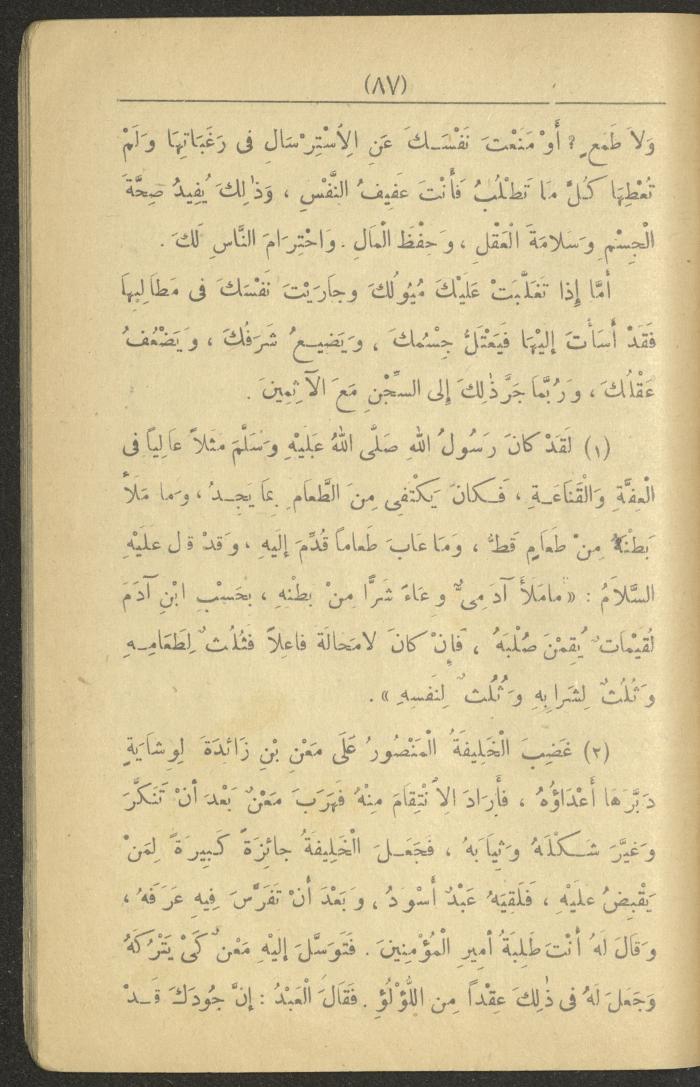 (٨٧)
وَلاَ طَمَعٍ ? أَوْ مَنَعْتَ نَفْسَكَ عَنِ الِاسْتِرْسَالِ فِى رَغَبَاتِهَا وَلَمْ
تُعْطِهَا كُلَّ مَا تَطْلُبُ فَأَنْتَ عَفِيفُ النَّفْسِ ، وَذٰلِكَ يُفِيدُ صِحَّةَ
الْجِسْمِ وَسَلامَةَ الْعَقْلِ ، وَحِفْظَ الْمَالِ . وَاحْتِرَامَ النَّاسِ لَكَ .
أَمَّا إِذَا تَغَلَّبَتْ عَلَيْكَ مُيُولُكَ وجاَرَيْتَ نَفْسَكَ فى مَطَالِبِهَا
فَقَدْ أَسَأْتَ إِليْهَا فَيَعْتَلُّ جِسْمُكَ ، وَيَضِيعُ شَرَفُكَ ، وَيَضْعُفُ
عَقْلُكَ ، وَرُبَّمَا جَرَّ ذٰلِكَ إِلى السِّجْنِ مَعَ الآثِمِينَ .
(١) لَقَدْ كانَ رَسُولُ اللهِ صَلَّى اللهُ عَلَيْهِ وَسَلَّمَ مَثلاً عَالِياً فِى
الْعِفَّةِ وَالْقَنَاعَةِ ، فَكانَ يَكْتَفِى مِنَ الطَّعَامِ بِمَا يَجِدُ ، وَما مَلَأَ
بَطْنَهُ مِنْ طَعَامٍ قَطُّ ، وَمَا عَابَ طَعاماً قُدِّمَ إِلَيهِ ، وَقَدْ قل عَليْهِ
السَّلاَمُ : « مامَلَأَ آدَمِىٌّ وِعَاءً شَرًّا مِنْ بَطْنِهِ ، بِحَسْبِ ابْنِ آدَمَ
لُقَيْمَاتٌ يُقِمْنَ صُلْبَهُ ، فَإِنْ كَانَ لامَحالَةَ فاعِلاً فَثُلُثٌ لِطَعَامِهِ
وَثُلُثٌ لِشَرَابِهِ وَثُلُثٌ لِنَفَسِهِ » .
(٢) غَضِبَ الْخَلِيفَةُ الْمَنْصُورُ عَلَى مَعْنِ بْنِ زَائِدَةَ لِوِشَايَةٍ
دَبَّرَهَا أَعْدَاؤُهُ ، فَأَرَادَ الِانْتِقَامَ مِنْهُ فَهَرَبَ مَعْنٌ بَعْدَ أَنْ تَنَكَّرَ
وَغَيَّرَ شَكْلَهُ وَثِيَابَهُ ، فَجَعَلَ الْخَلِيفَةُ جائِزَةً كَبِيرَةً لِمَنْ
يَقْبِضُ عَليْهِ ، فَلَقِيَهُ عَبْدٌ أَسْوَدُ ، وَبَعْدَ أَنْ تَفَرَّسَ فِيهِ عَرَفَهُ ،
وَقَالَ لَهُ أَنْتَ طَلِبَةُ أَمِيرِ الْمُؤْمِنِينَ . فَتَوَسَّلَ إِلَيْهِ مَعْنٌ كَىْ يَتْرُكَهُ
وَجَعَلَ لَهُ فِى ذٰلِكَ عِقْداً مِن اللُّؤْلُؤِ . فَقَالَ الْعَبْدُ : إِنَّ جُودَكَ قَدْ